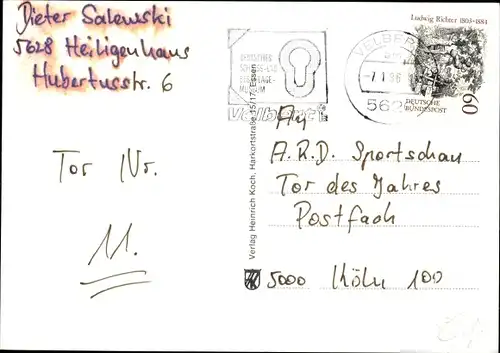 Dieter Salewski
5628 Heiligenhaus
Hubertusstr. 6
Tor Nr.
11.
DEUTSCHES
SCHLOSS- UND
BESCHLÄGE-
MUSEUM
Velbert
Verlag Heinrich Koch, Harkortstraße 15/17, Essen
VELBERT
562
Ludwig Richter 1803-1884
60
DEUTSCHE
BUNDESPOST
An
A.R.D. Sportschau
Tor des Jahres
Postfach
5000 Köln 100